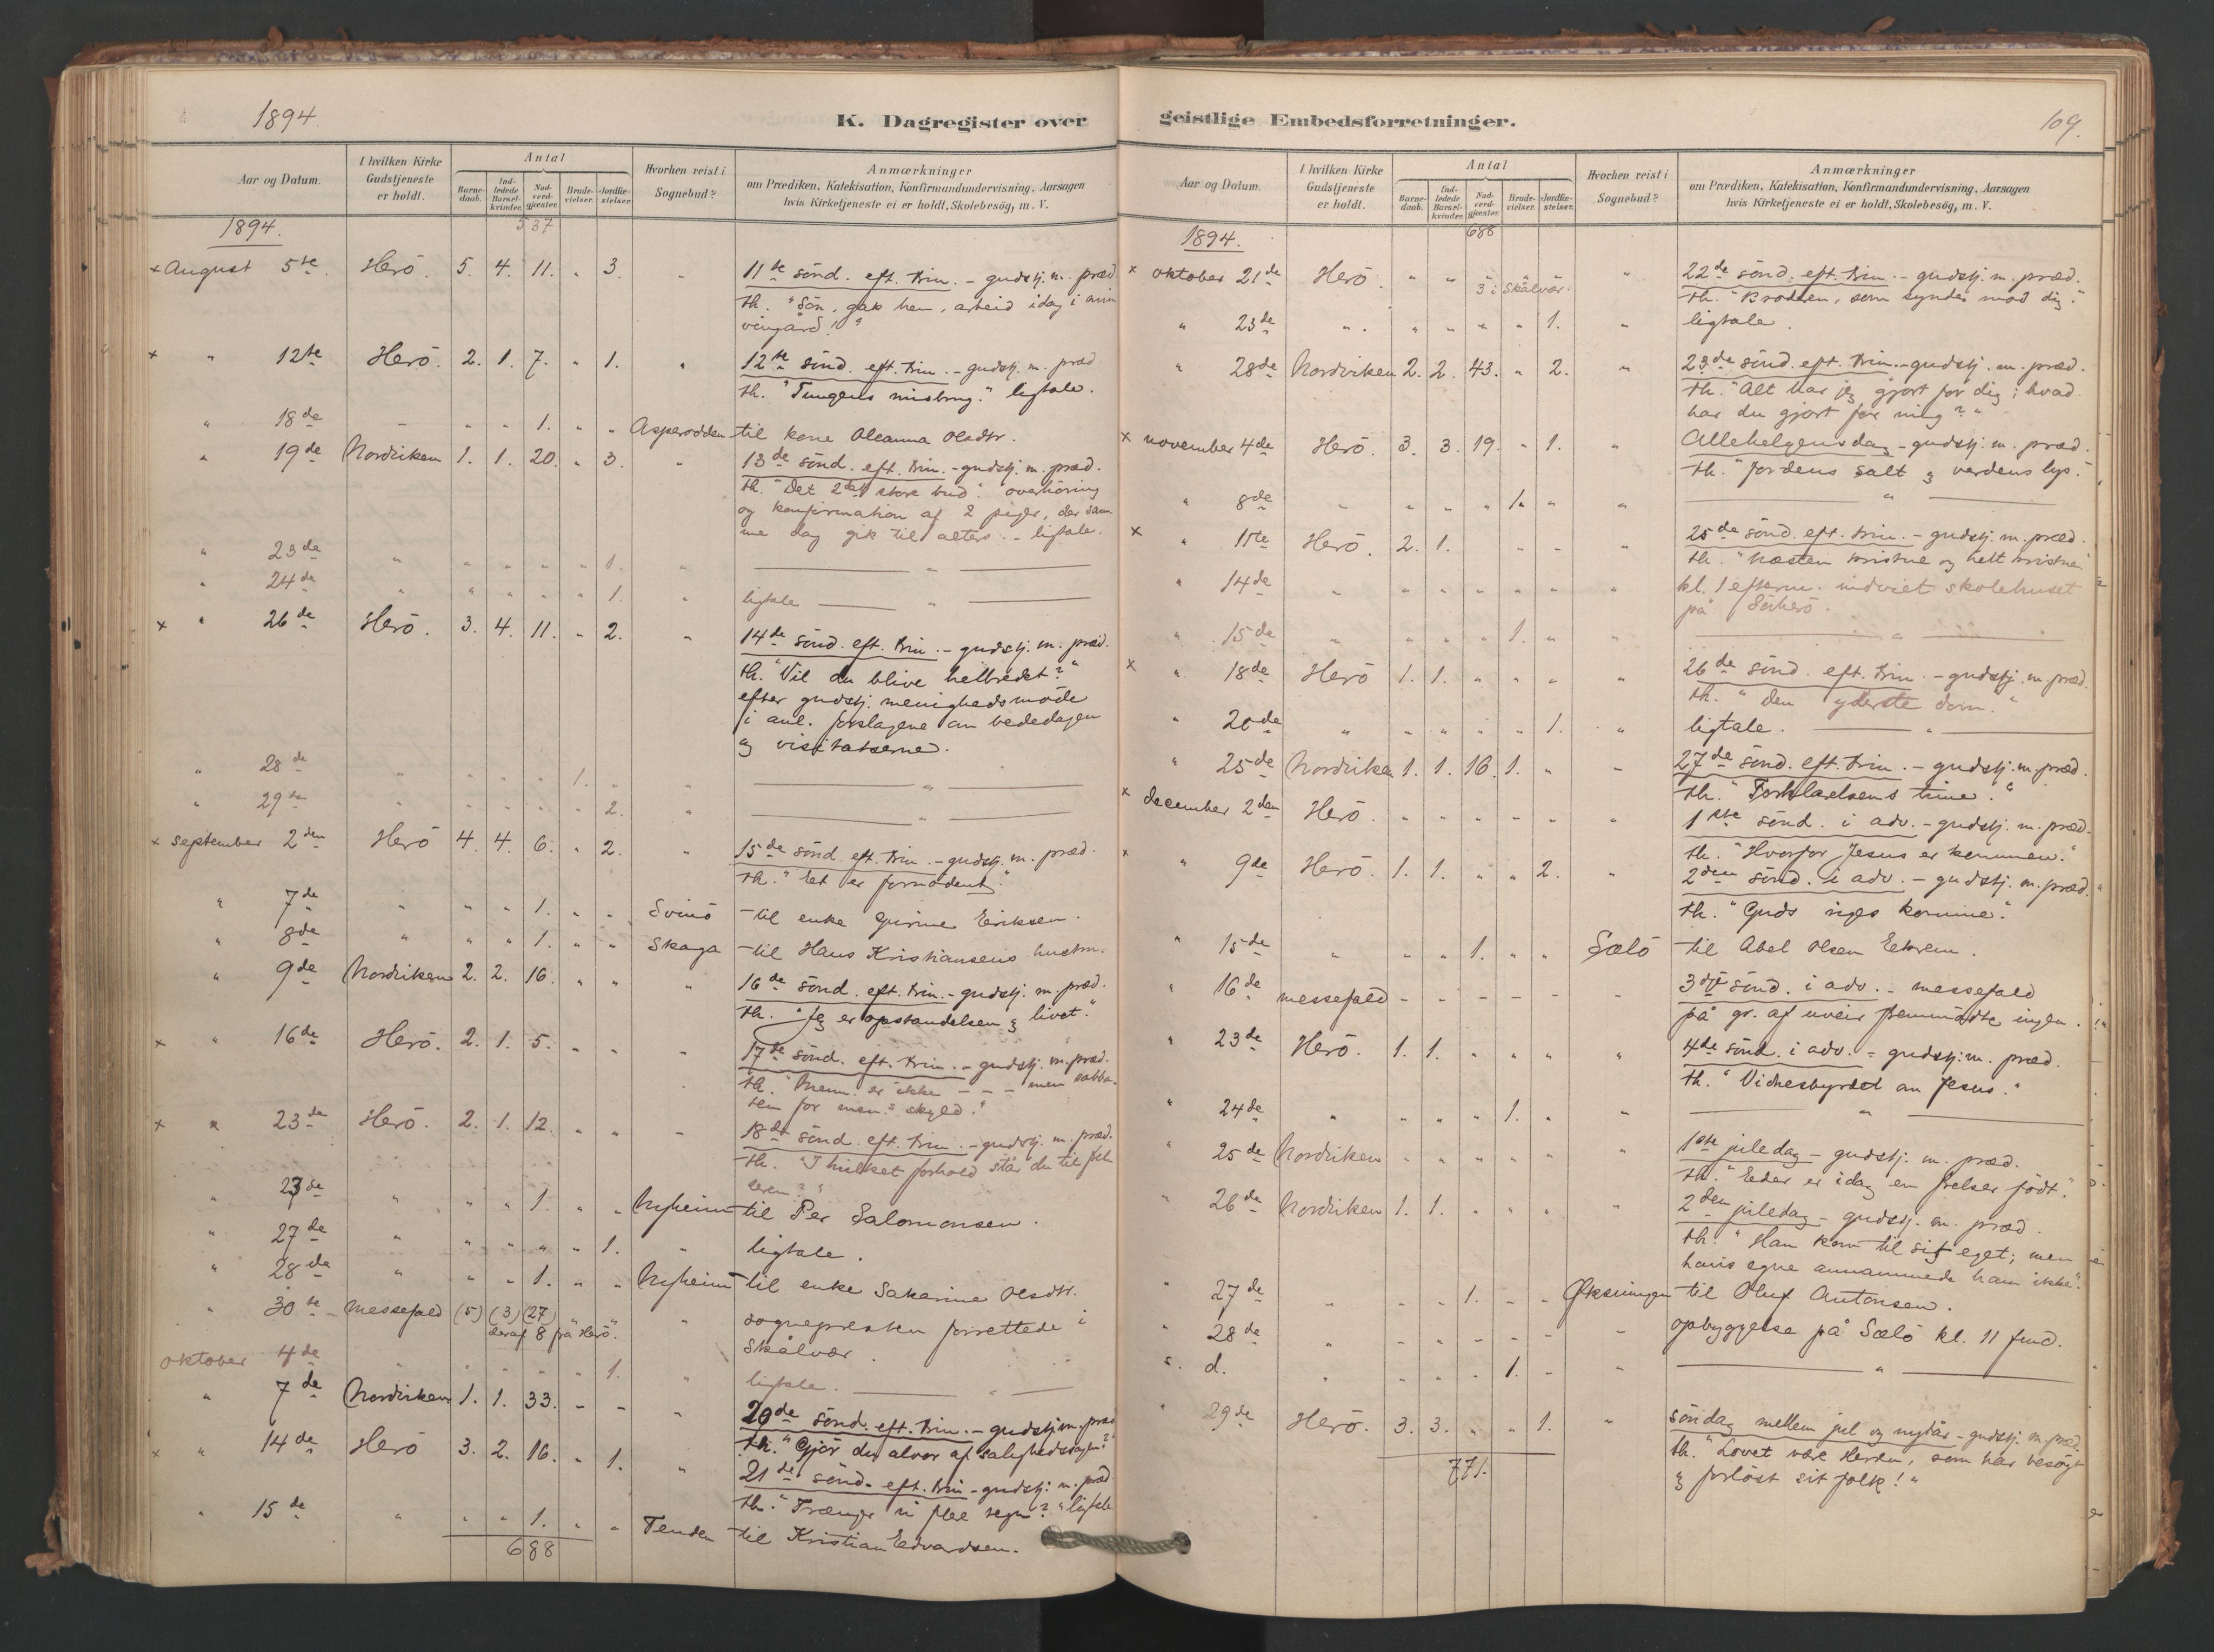 1894.
K. Dagregister over
Aar og Datum.
I hvilken Kirke Gudstjeneste er holdt.
Antal
Barne-daab.
Ind-ledede Barsel-kvinder.
Nad-verd-gjæster.
Brude-vielser.
Jordfæ-stelser.
Hvorhen reist i Sognebud?
Anmærkninger
om Prædiken, Katekisation, Konfirmandundervisning, Aarsagen
hvis Kirketjeneste ei er holdt, Skolebesög, m. V.
1894. 537
× August 5te. Herö. 5. 4. 11. „ 3. „ 11te sönd. eft. trin. - gudstj. m. præd.
th. "Sön, gak hen, arbeid idag i min
vingård!"
× „ 12te Herö. 2. 1. 7. „ 1. „ 12te sönd. eft. trin. - gudstj. m. præd
th. "Tungens misbrug." ligtale.
„ 18de - „ „ 1. „ „ Asperodden til kone Oleanna Olsdtr.
„ 19de Nordviken 1. 1. 20. „ 3. „ 13de sönd. eft. trin. - gudstj. m. præd.
th. "Det 2det store bud". overhöring
og konfirmation af 2 piger, der sam-
me dag gik til alters. - ligtale.
„ 23de „ „ „ „ „ 1. „ „
„ 24de „ „ „ „ „ 1. „ ligtale „
× „ 26de Herö. 3. 4. 11. „ 2. „ 14de sönd. eft. trin. - gudstj. m. præd.
th. "Vil du blive helbredet?"
efter gudstj. menighedsmöde
i anl. forslagene om bededagen
og visitatserne.
„ 28de „ „ „ „ 1. „ „ „
„ 29de „ „ „ „ „ 2. „ „
× september 2den Herö 4. 4. 6. „ 2. „ 15de sönd. eft. trin. - gudstj. m. præd.
th. "Et er fornödent."
„ 7de „ „ „ 1. „ „ Svinö til enke Gurine Eriksen.
„ 8de „ „ „ 1. „ „ Skaga til Hans Kristiansens hustru.
„ 9de Nordviken 2. 2. 16. „ „ „ 16de sönd. eft. trin. - gudstj. m. præd.
th. "Jeg er opstandelsen og livet."
× „ 16de Herö. 2. 1. 5. „ „ „ 17de sönd. eft. trin. - gudstj. m. præd.
th. "Menn. er ikke - - - men sabba-
ten for menn.s skyld."
× „ 23de Herö. 2. 1. 12. „ „ - 18de sönd. eft. trin. - gudstj. m. præd.
th. "I hvilket forhold står du til frel-
seren?"
„ 23de „ „ „ 1. „ „ Nyheim til Per Salomonsen.
„ 27de „ „ „ „ „ 1. „ ligtale.
„ 28de „ „ „ 1. „ „ Nyheim til enke Sakarine Olsdtr.
„ 30te messefald (5) (3) (27) „ „ „ sognepresten forrettede i
deraf 8 fra Herö. Skålvær.
oktober 4de „ „ „ „ „ 1. „ ligtale. „
„ 7de Nordviken 1. 1. 33. - - „ 20de sönd. eft. trin. - gudstj. m. præd
th. "Gjör du alvor af salighedssagen?"
× „ 14de Herö 3. 2. 16. „ 1. „ 21de sönd. eft. trin - gudstj. m. præd
th. "Trænger vi flere tegn?" ligtale
„ 15de „ „ „ 1. „ „ Tenden til Kristian Edvardsen.
688
geistlige Embedsforretninger.
109.
Aar og Datum.
I hvilken Kirke Gudstjeneste er holdt.
Antal
Barne-daab.
Ind-ledede Barsel-kvinder.
Nad-verd-gjæster.
Brude-vielser.
Jordfæ-stelser.
Hvorhen reist i Sognebud?
Anmærkninger
om Prædiken, Katekisation, Konfirmandundervisning, Aarsagen
hvis Kirketjeneste ei er holdt, Skolebesög, m. V.
1894. 688
× oktober 21de Herö. „ „ „ „ „ „ 22de sönd. eft. trin. - gudstj. m. præd.
3 i Skålvær. th. "Broderen, som synder mod dig."
„ 23de „ „ „ „ „ 1. „ ligtale.
„ 28de Nordviken 2. 2. 43. „ 2. „ 23de sönd. eft. trin. - gudstj. m. præd.
th. "Alt har jeg gjort for dig; hvad
har du gjort for mig?"
× november 4de Herö. 3. 3. 19. „ 1. „ Allehelgensdag - gudstj. m. præd.
th. "Jordens salt og verdens lys."
„ 8de „ „ „ „ 1. „ „ „
× „ 11te Herö. 2. 1. „ „ „ 25de sönd. eft. trin. - gudstj. m. præd.
th. "Næsten kristne og helt kristne."
„ 14de „ „ „ „ „ „ „ kl. 1 efterm. indviet skolehuset
på Sörherö.
„ 15de „ „ „ „ 1. „ „ „
× „ 18de Herö 1. 1. „ „ „ „ 26de sönd. eft. trin. - gudstj. m. præd.
th. "den yderste dom."
„ 20de „ „ „ „ „ 1. „ ligtale. „
„ 25de Nordviken 1. 1. 16. 1. „ - 27de sönd. eft. trin. - gudstj. m. præd.
th. "Forklarelsens time."
× december 2den Herö. „ „ „ „ „ „ 1ste sönd. i adv. - gudstj. m. præd.
th. "Hvorfor Jesus er kommen."
× „ 9de Herö. 1. 1. „ „ 2. „ 2den sönd. i adv. - gudstj. m. præd.
th. "Guds riges komme."
„ 15de „ „ „ 1. „ „ Sælö til Abel Olsen Eekrem.
„ 16de messefald - - - - - - 3die sönd. i adv. - messefald
på gr. af uveir fremmödte ingen.
„ 23de Herö. 1. 1. „ „ „ „ 4de sönd. i adv. - gudstj. m. præd.
th. "Vidnesbyrdet om Jesus."
„ 24de „ „ „ „ 1. „ „ „
„ 25de Nordviken „ „ „ „ „ „ 1ste juledag - gudstj. m. præd.
th. "Eder er idag en frelser födt."
„ 26de Nordviken 1. 1. „ „ „ „ 2den juledag - gudstj. m. præd.
th. "Han kom til sit eget; men
hans egne annammede ham ikke."
„ 27de „ „ „ 1. „ „ Öksningen til Oluf Antonsen.
„ 28de „ - - - - - - opbyggelse på Sælö kl. 11 fmd.
s. d. „ „ „ „ 1. „ „ „
„ 29de Herö. 3. 3. „ „ 1. „ söndag mellem jul og nytår - gudstj. m. præd.
th. "Lovet være Herren, som har besögt
og forlöst sit folk!"
771.